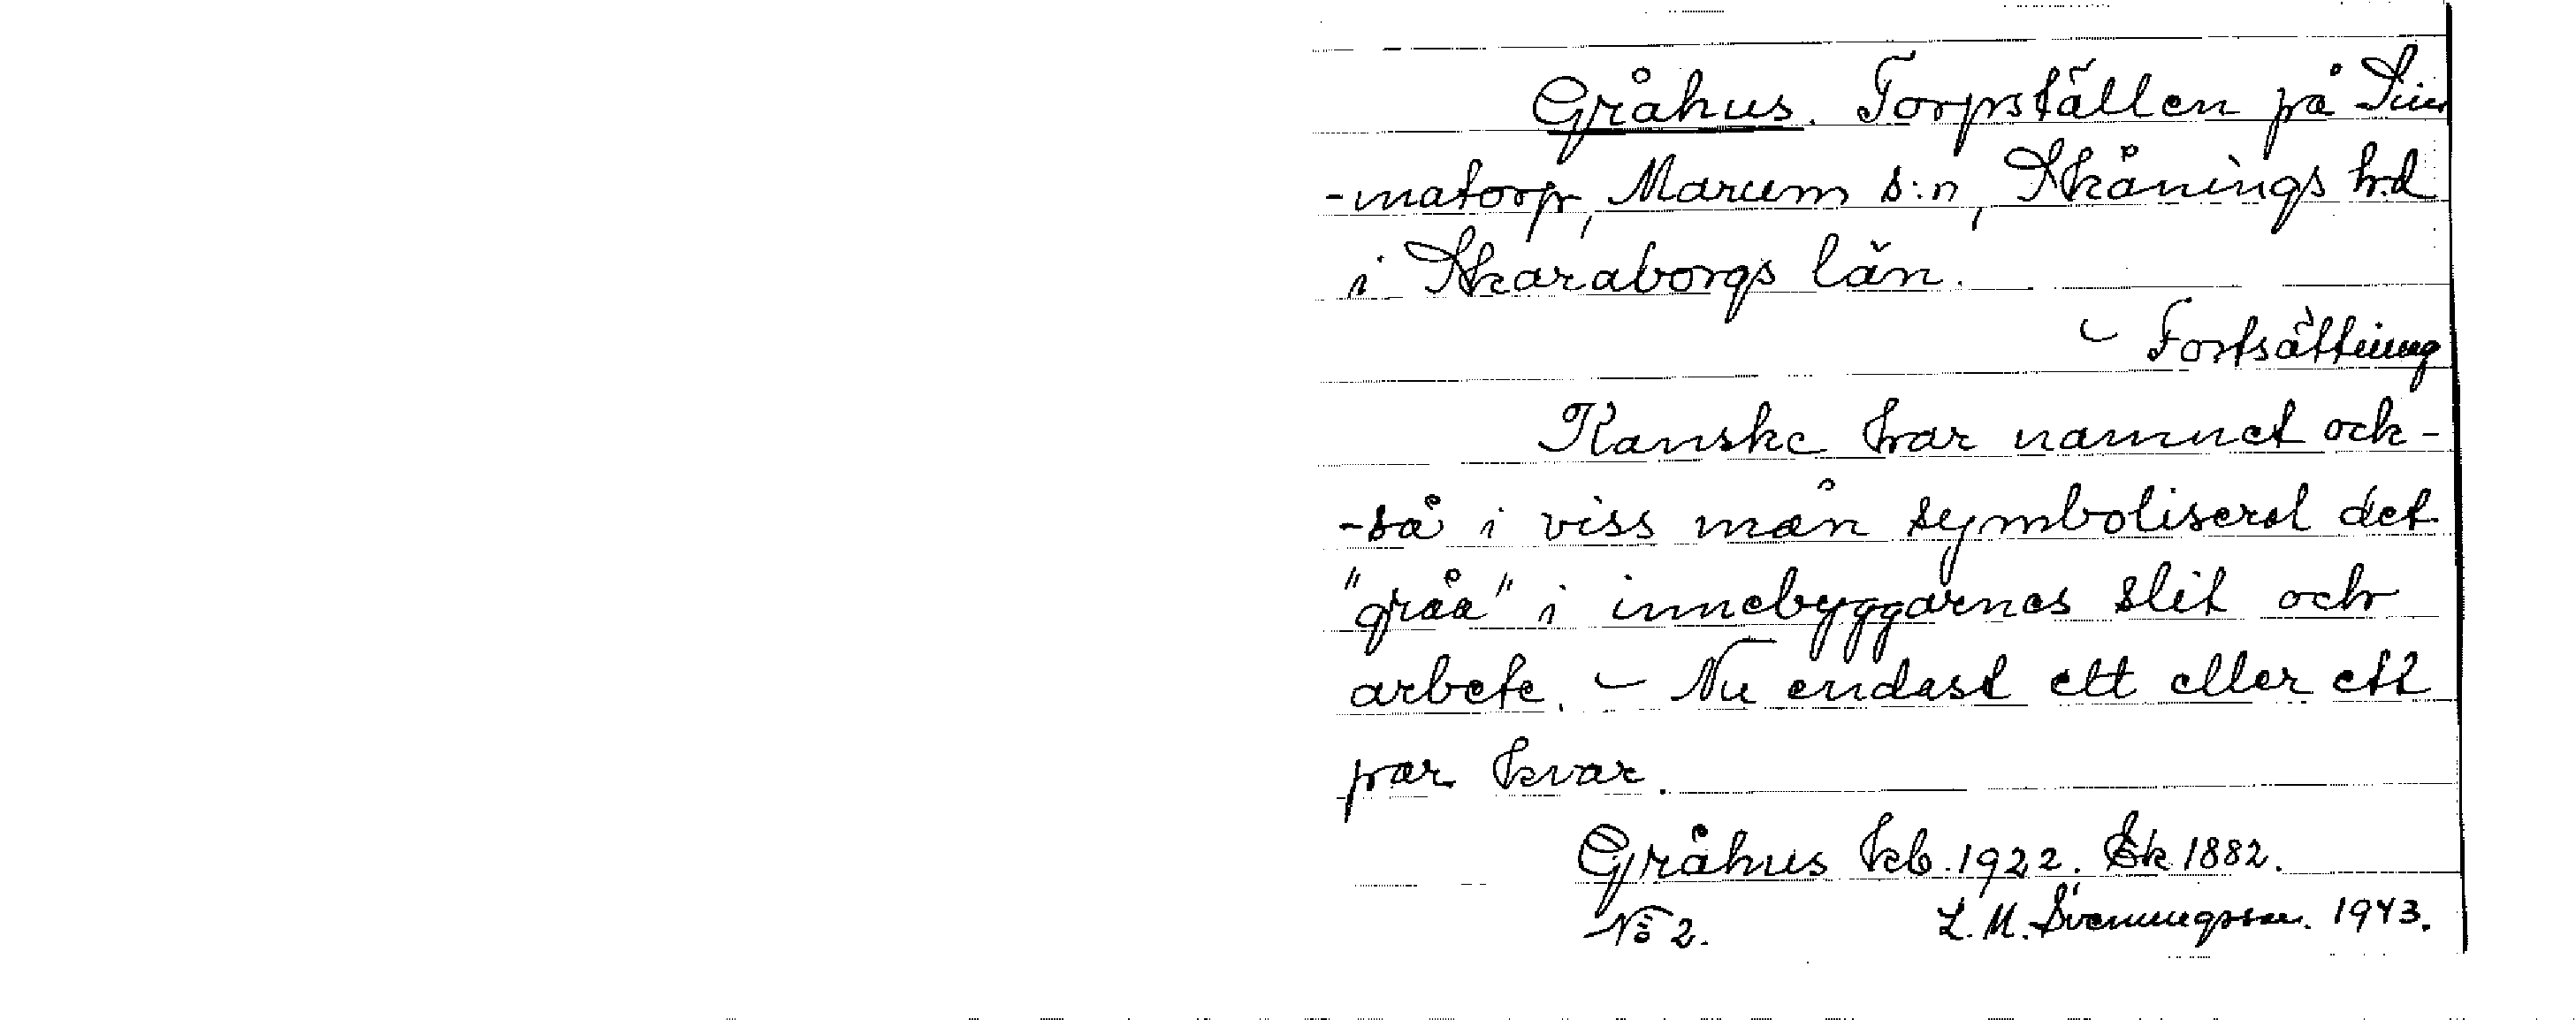 Gråhus. Torpställen på Sim
-matorp, Marum s:n, Skånings hd
i Skaraborgs län.
- Fortsättning
Kanske har namnet ock-
-så i viss mån symboliserat det
"gråa" i innebyggarnes slit och
arbete. - Nu endast ett eller ett
par kvar.
Gråhus kb. 1922. Ek 1882.
No 2. L. M. Svenungsson. 1943.